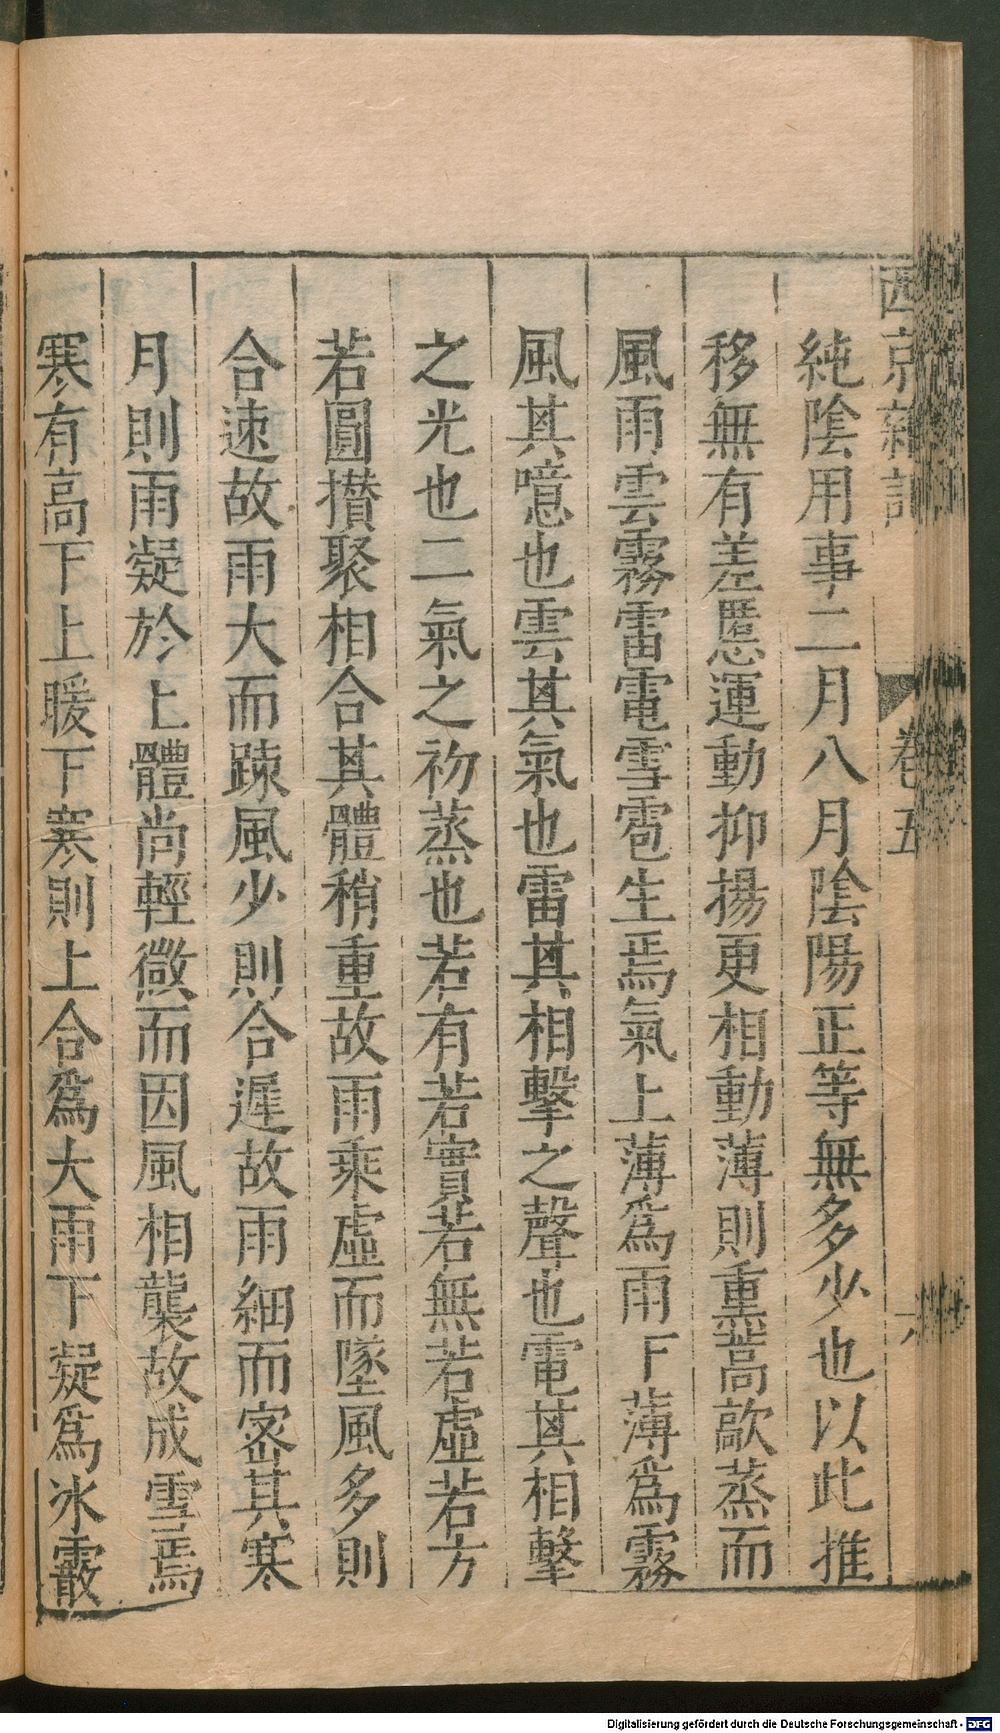 西京雜記
卷五
純陰用事二月八月陰陽正等無多少也以此推
移無有差慝運動抑揚更相動薄則熏蒿歊蒸而
風雨雲霧雷電雪雹生焉氣上薄爲雨下薄爲霧
風其噫也雲其氣也雷其相擊之聲也電其相擊
之光也二氣之初蒸也若有若實若無若虛若方
若圓攅聚相合其體稍重故雨乘虛而墜風多則
合速故雨大而踈風少則合遲故雨細而密其寒
月則雨凝於上體尚輕微而因風相襲故成雪焉
寒有高下上暖下寒則上合爲大雨下凝爲冰霰
Digitalisierung gefördert durch die Deutsche Forschungsgemeinschaft - DFG